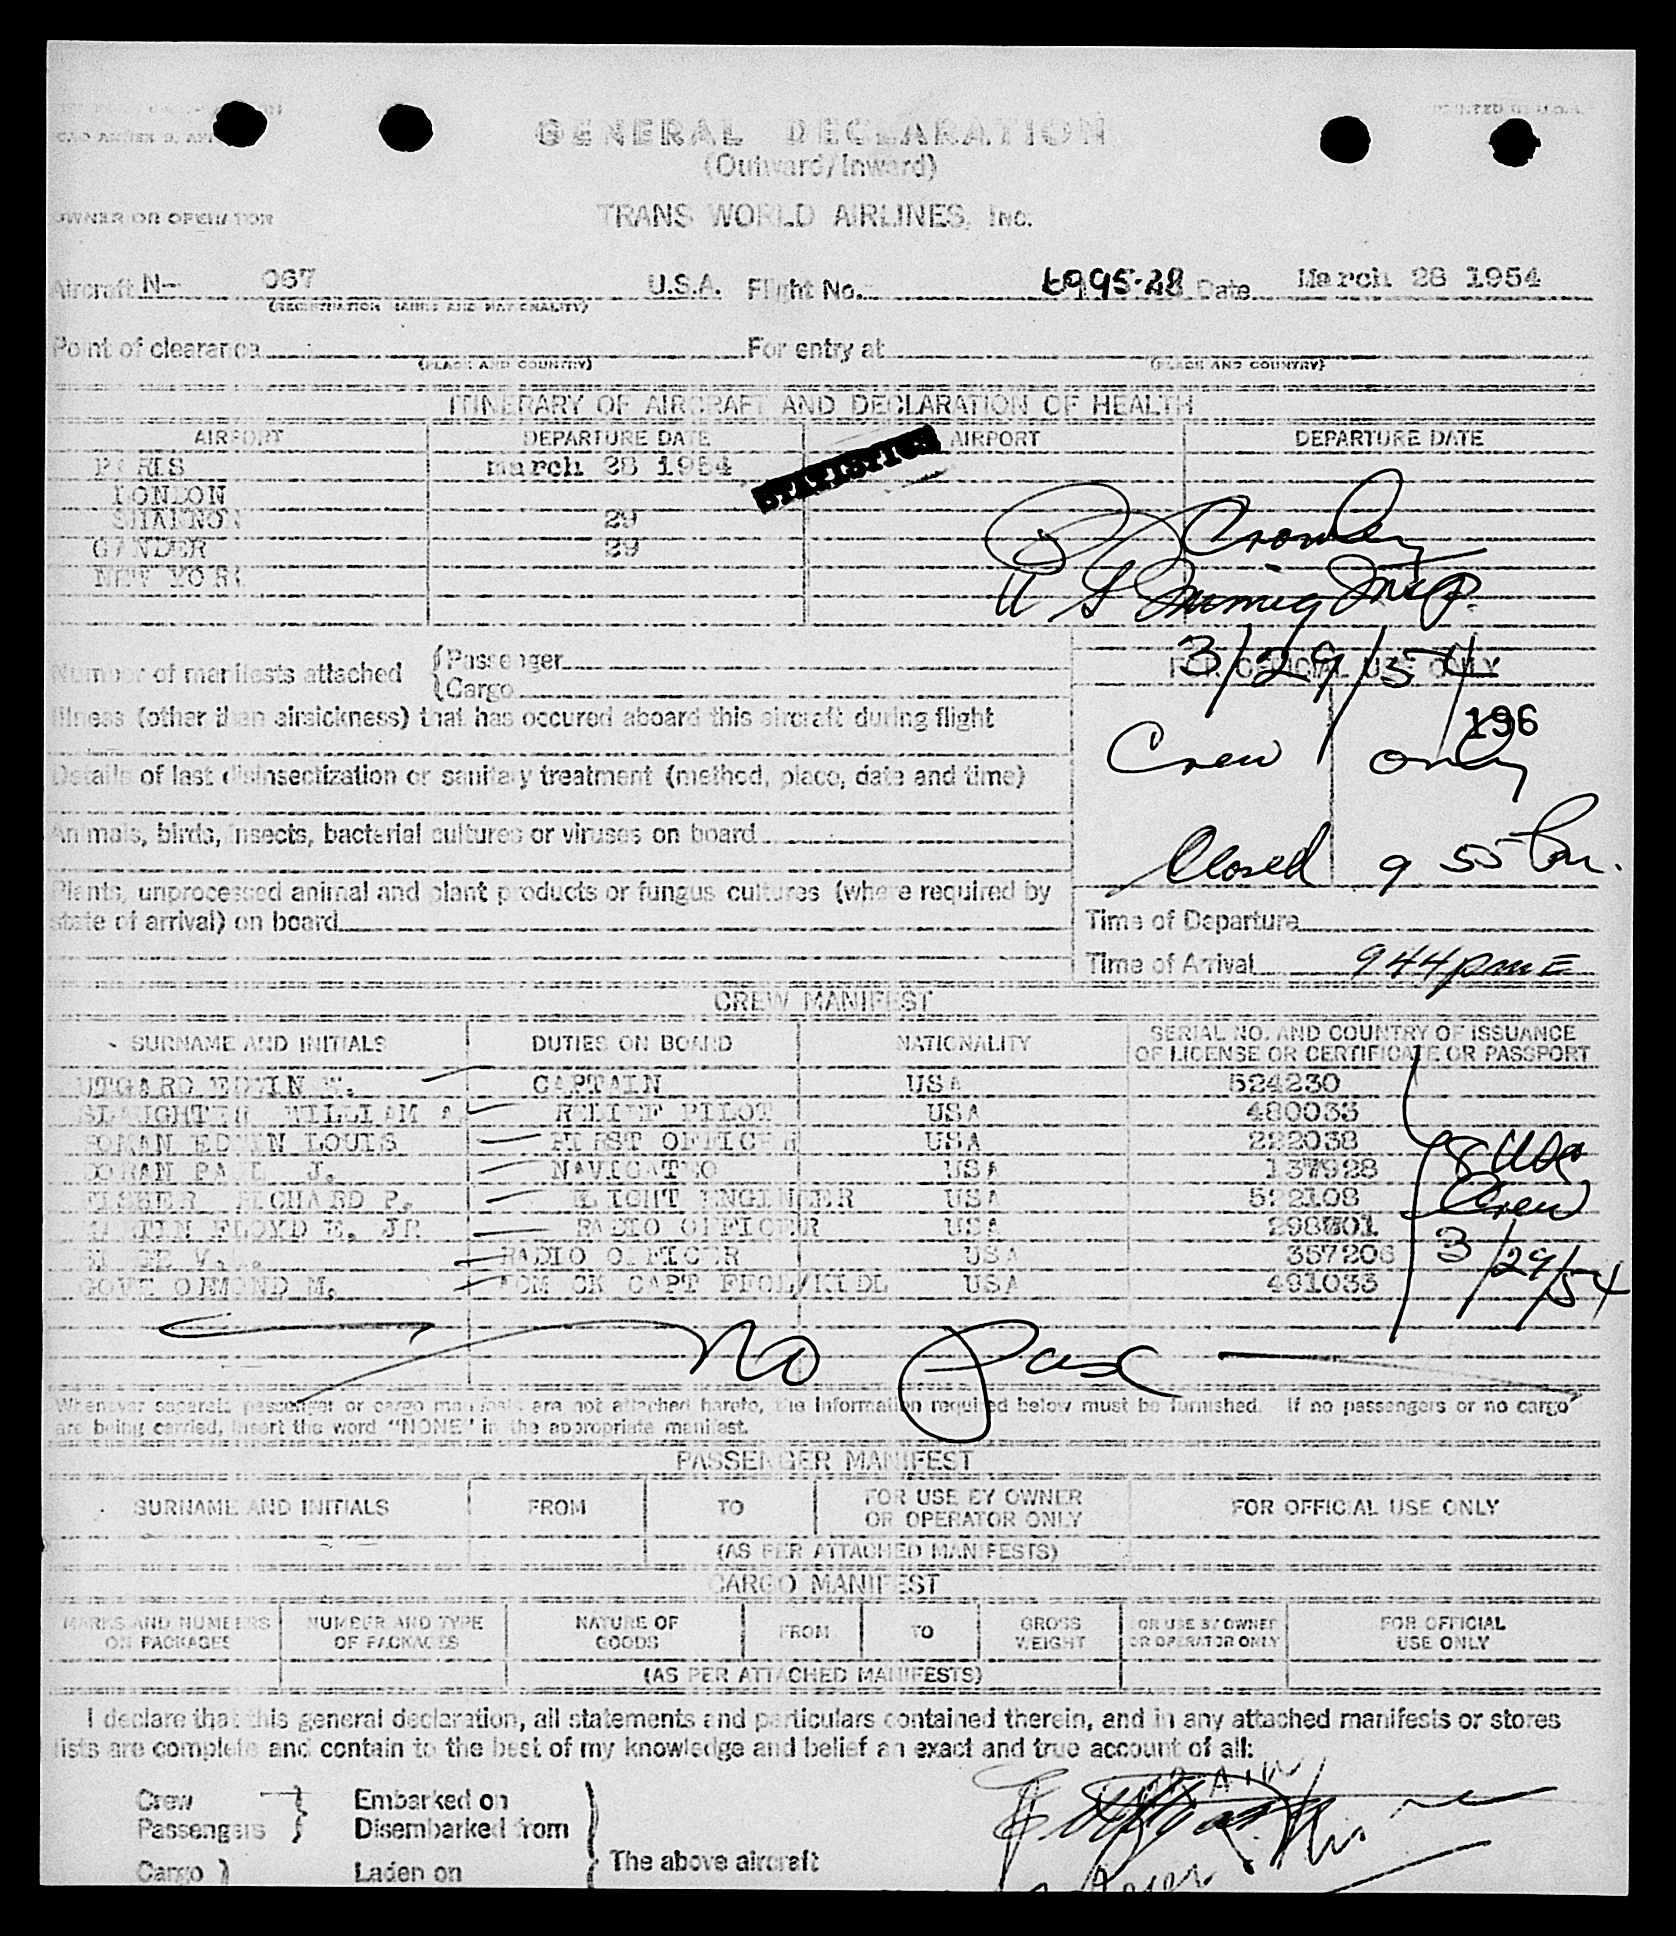 GENERAL DECLARATION
(Outward/Inward)
OWNER OR OPERATOR TRANS WORLD AIRLINES, INC.
Aircraft N- 067 U.S.A. Flight No. 6995-28 Date March 28 1954
(REGISTRATION MARKS AND NATIONALITY)
Point of clearance For entry at
(PLACE AND COUNTRY) (PLACE AND COUNTRY)
ITINERARY OF AIRCRAFT AND DECLARATION OF HEALTH
AIRPORT DEPARTURE DATE AIRPORT DEPARTURE DATE
PARIS March 28 1954
STATISTICS
LONDON
SHANNON 29
GANDER 29
NEW YORK
Crowley
U S Immig Insp.
3/29/54
Number of manifests attached {Passenger
{Cargo
FOR OFFICIAL USE ONLY
Illness (other than airsickness) that has occured aboard this aircraft during flight
196
Crew only
Details of last disinsectization or sanitary treatment (method, place, date and time)
Animals, birds, insects, bacterial cultures or viruses on board
Closed 9 55 pm.
Plants, unprocessed animal and plant products or fungus cultures (where required by
state of arrival) on board
Time of Departure
Time of Arrival 944 pm E
CREW MANIFEST
SURNAME AND INITIALS DUTIES ON BOARD NATIONALITY SERIAL NO. AND COUNTRY OF ISSUANCE
OF LICENSE OR CERTIFICATE OR PASSPORT
UTGARD EDWIN W. CAPTAIN USA 524230
SLAUGHTER WILLIAM A. RELIEF PILOT USA 480033
EDWIN LOUIS FIRST OFFICER USA 222038
DORAN PAUL J. NAVIGATRO USA 137928
FISHER RICHARD P. FLIGHT ENGINEER USA 522108
MARTIN FLOYD E. JR RADIO OFFICER USA
RADIO OFFICER USA 357206
GOVE ORMOND M. COM CK CAPT USA 491033
8 USA
Crew
3/29/54
No Pass
Whenever separate passenger or cargo manifests are not attached hereto, the information required below must be furnished. If no passengers or no cargo
are being carried, insert the word "NONE" in the appropriate manifest.
PASSENGER MANIFEST
SURNAME AND INITIALS FROM TO FOR USE BY OWNER
OR OPERATOR ONLY FOR OFFICIAL USE ONLY
(AS PER ATTACHED MANIFESTS)
CARGO MANIFEST
MARKS AND NUMBERS
ON PACKAGES NUMBER AND TYPE
OF PACKAGES NATURE OF
GOODS FROM TO GROSS
WEIGHT FOR USE BY OWNER
OR OPERATOR ONLY FOR OFFICIAL
USE ONLY
(AS PER ATTACHED MANIFESTS)
I declare that this general declaration, all statements and particulars contained therein, and in any attached manifests or stores
lists are complete and contain to the best of my knowledge and belief an exact and true account of all:
Crew } Embarked on }
Passengers } Disembarked from }
The above aircraft
Cargo } Laden on